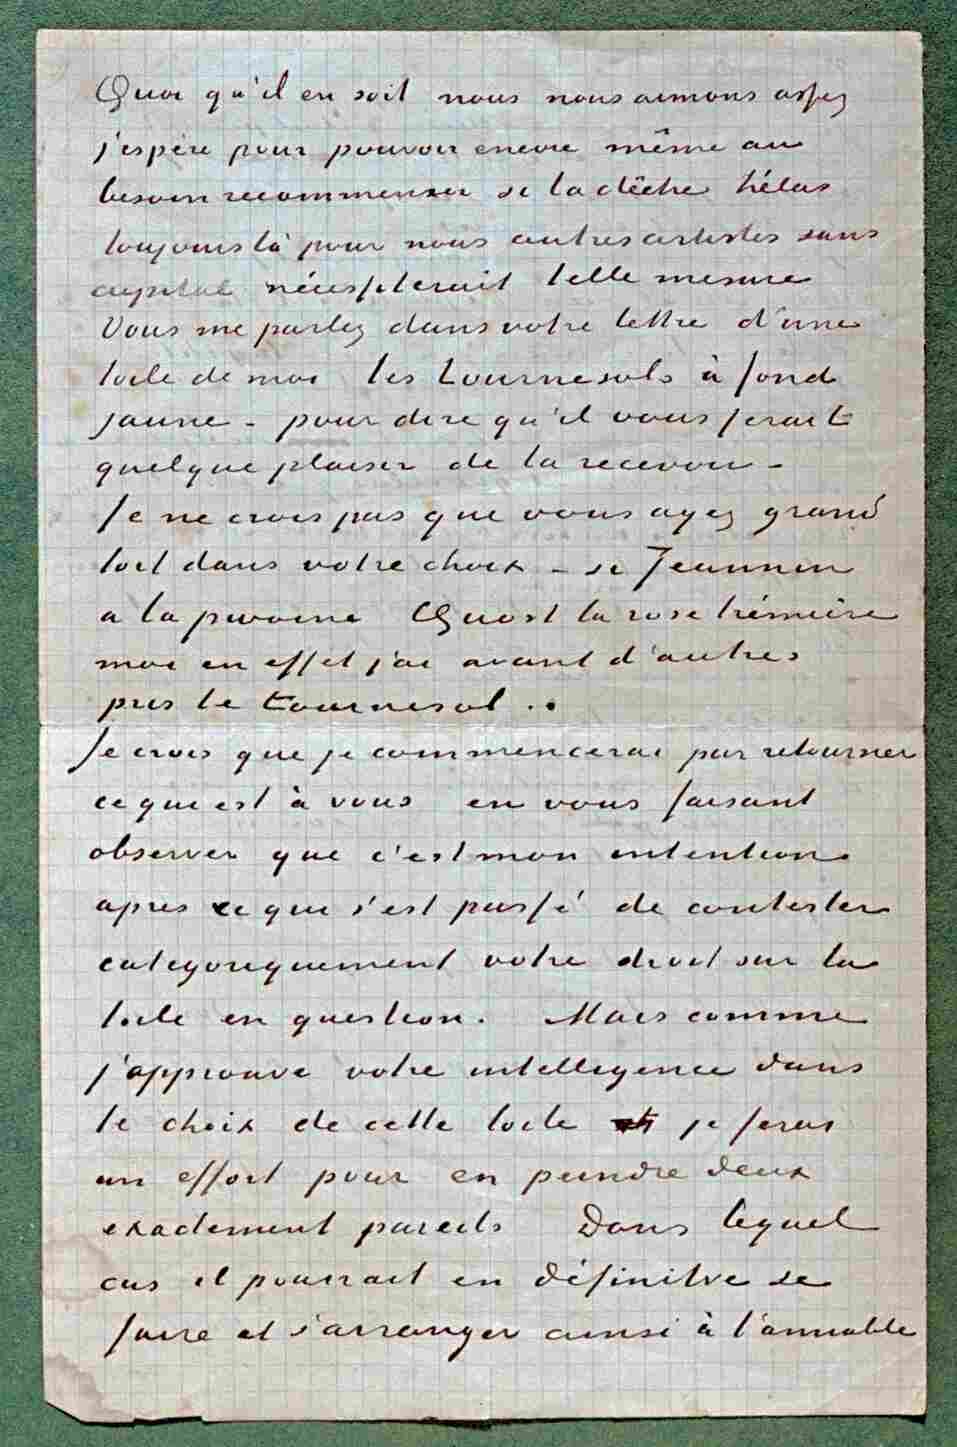 Quoi qu'il en soit nous nous aimons assez
j'espère pour pouvoir encore même au
besoin recommencer si la dêche hélas
toujours là pour nous autres artistes sans
capital nécessiterait telle mesure
Vous me parlez dans votre lettre d'une
toile de moi les tournesols à fond
jaune - pour dire qu'il vous ferait
quelque plaisir de la recevoir -
Je ne crois pas que vous ayez grand
tort dans votre choix - si Jeannin
a la pivoine Quost la rose trémière
moi en effet j'ai avant d'autres
pris le tournesol ..
Je crois que je commencerai par retourner
ce qui est à vous en vous faisant
observer que c'est mon intention
après ce qui s'est passé de contester
catégoriquement votre droit sur la
toile en question. Mais comme
j'approuve votre intelligence dans
le choix de cette toile je ferai
un effort pour en peindre deux
exactement pareils Dans lequel
cas il pourrait en définitive se
faire et s'arranger ainsi à l'amiable